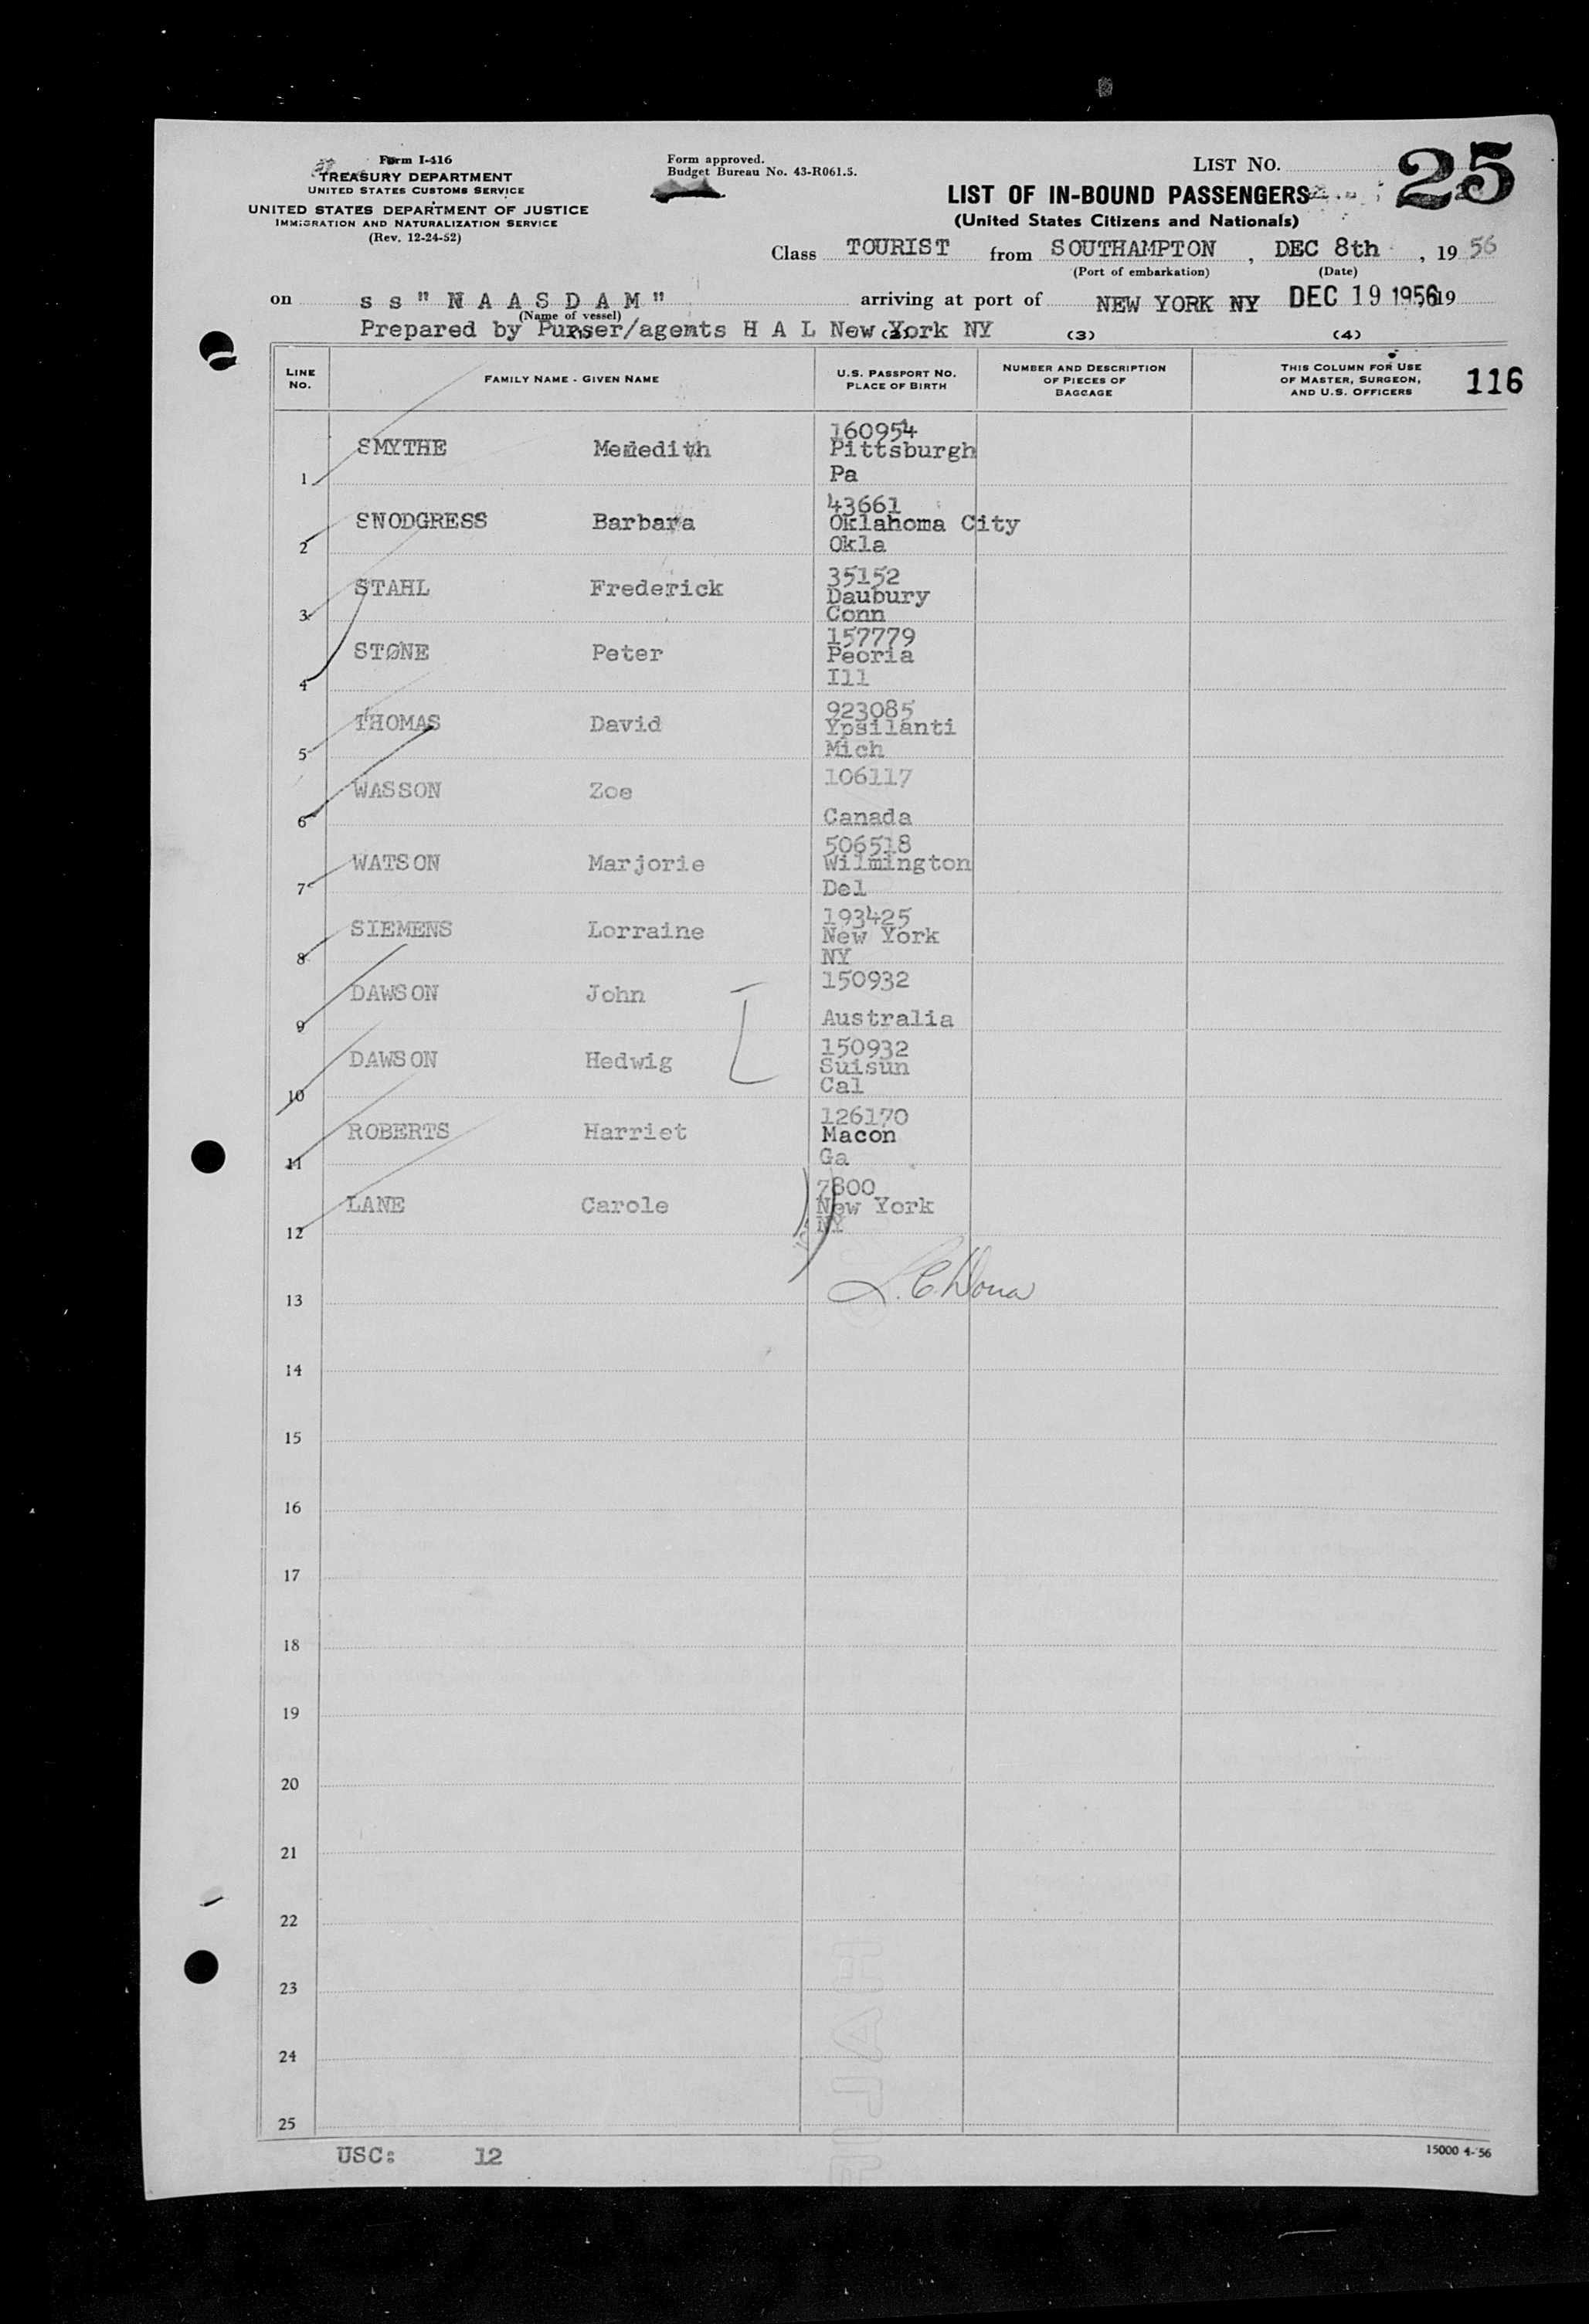 Form I-416
TREASURY DEPARTMENT
UNITED STATES CUSTOMS SERVICE
UNITED STATES DEPARTMENT OF JUSTICE
IMMIGRATION AND NATURALIZATION SERVICE
(Rev. 12-24-52)
Form approved.
Budget Bureau No. 43-R061.5.
LIST NO. 25
LIST OF IN-BOUND PASSENGERS
(United States Citizens and Nationals)
Class TOURIST from SOUTHAMPTON, DEC 8th, 19 56
(Port of embarkation) (Date)
on s s " M A A S D A M " arriving at port of NEW YORK NY DEC 19 1956 19
(Name of vessel)
Prepared by Purser/agents H A L New York NY (3) (4)
LINE NO. FAMILY NAME - GIVEN NAME U.S. PASSPORT NO. PLACE OF BIRTH NUMBER AND DESCRIPTION OF PIECES OF BAGGAGE THIS COLUMN FOR USE OF MASTER, SURGEON, AND U.S. OFFICERS 116
160954
SMYTHE Meredith Pittsburgh
1 Pa
43661
SNODGRESS Barbara Oklahoma City
2 Okla
35152
STAHL Frederick Daubury
3 Conn
157779
STONE Peter Peoria
4 Ill
923085
THOMAS David Ypsilanti
5 Mich
106117
WASSON Zoe
6 Canada
506518
WATSON Marjorie Wilmington
7 Del
193425
SIEMENS Lorraine New York
8 NY
150932
DAWSON John
9 Australia
150932
DAWSON Hedwig Suisun
10 Cal
126170
ROBERTS Harriet Macon
11 Ga
7800
LANE Carole New York
12 NY
13
14
15
16
17
18
19
20
21
22
23
24
25
USC: 12
15000 4-'56